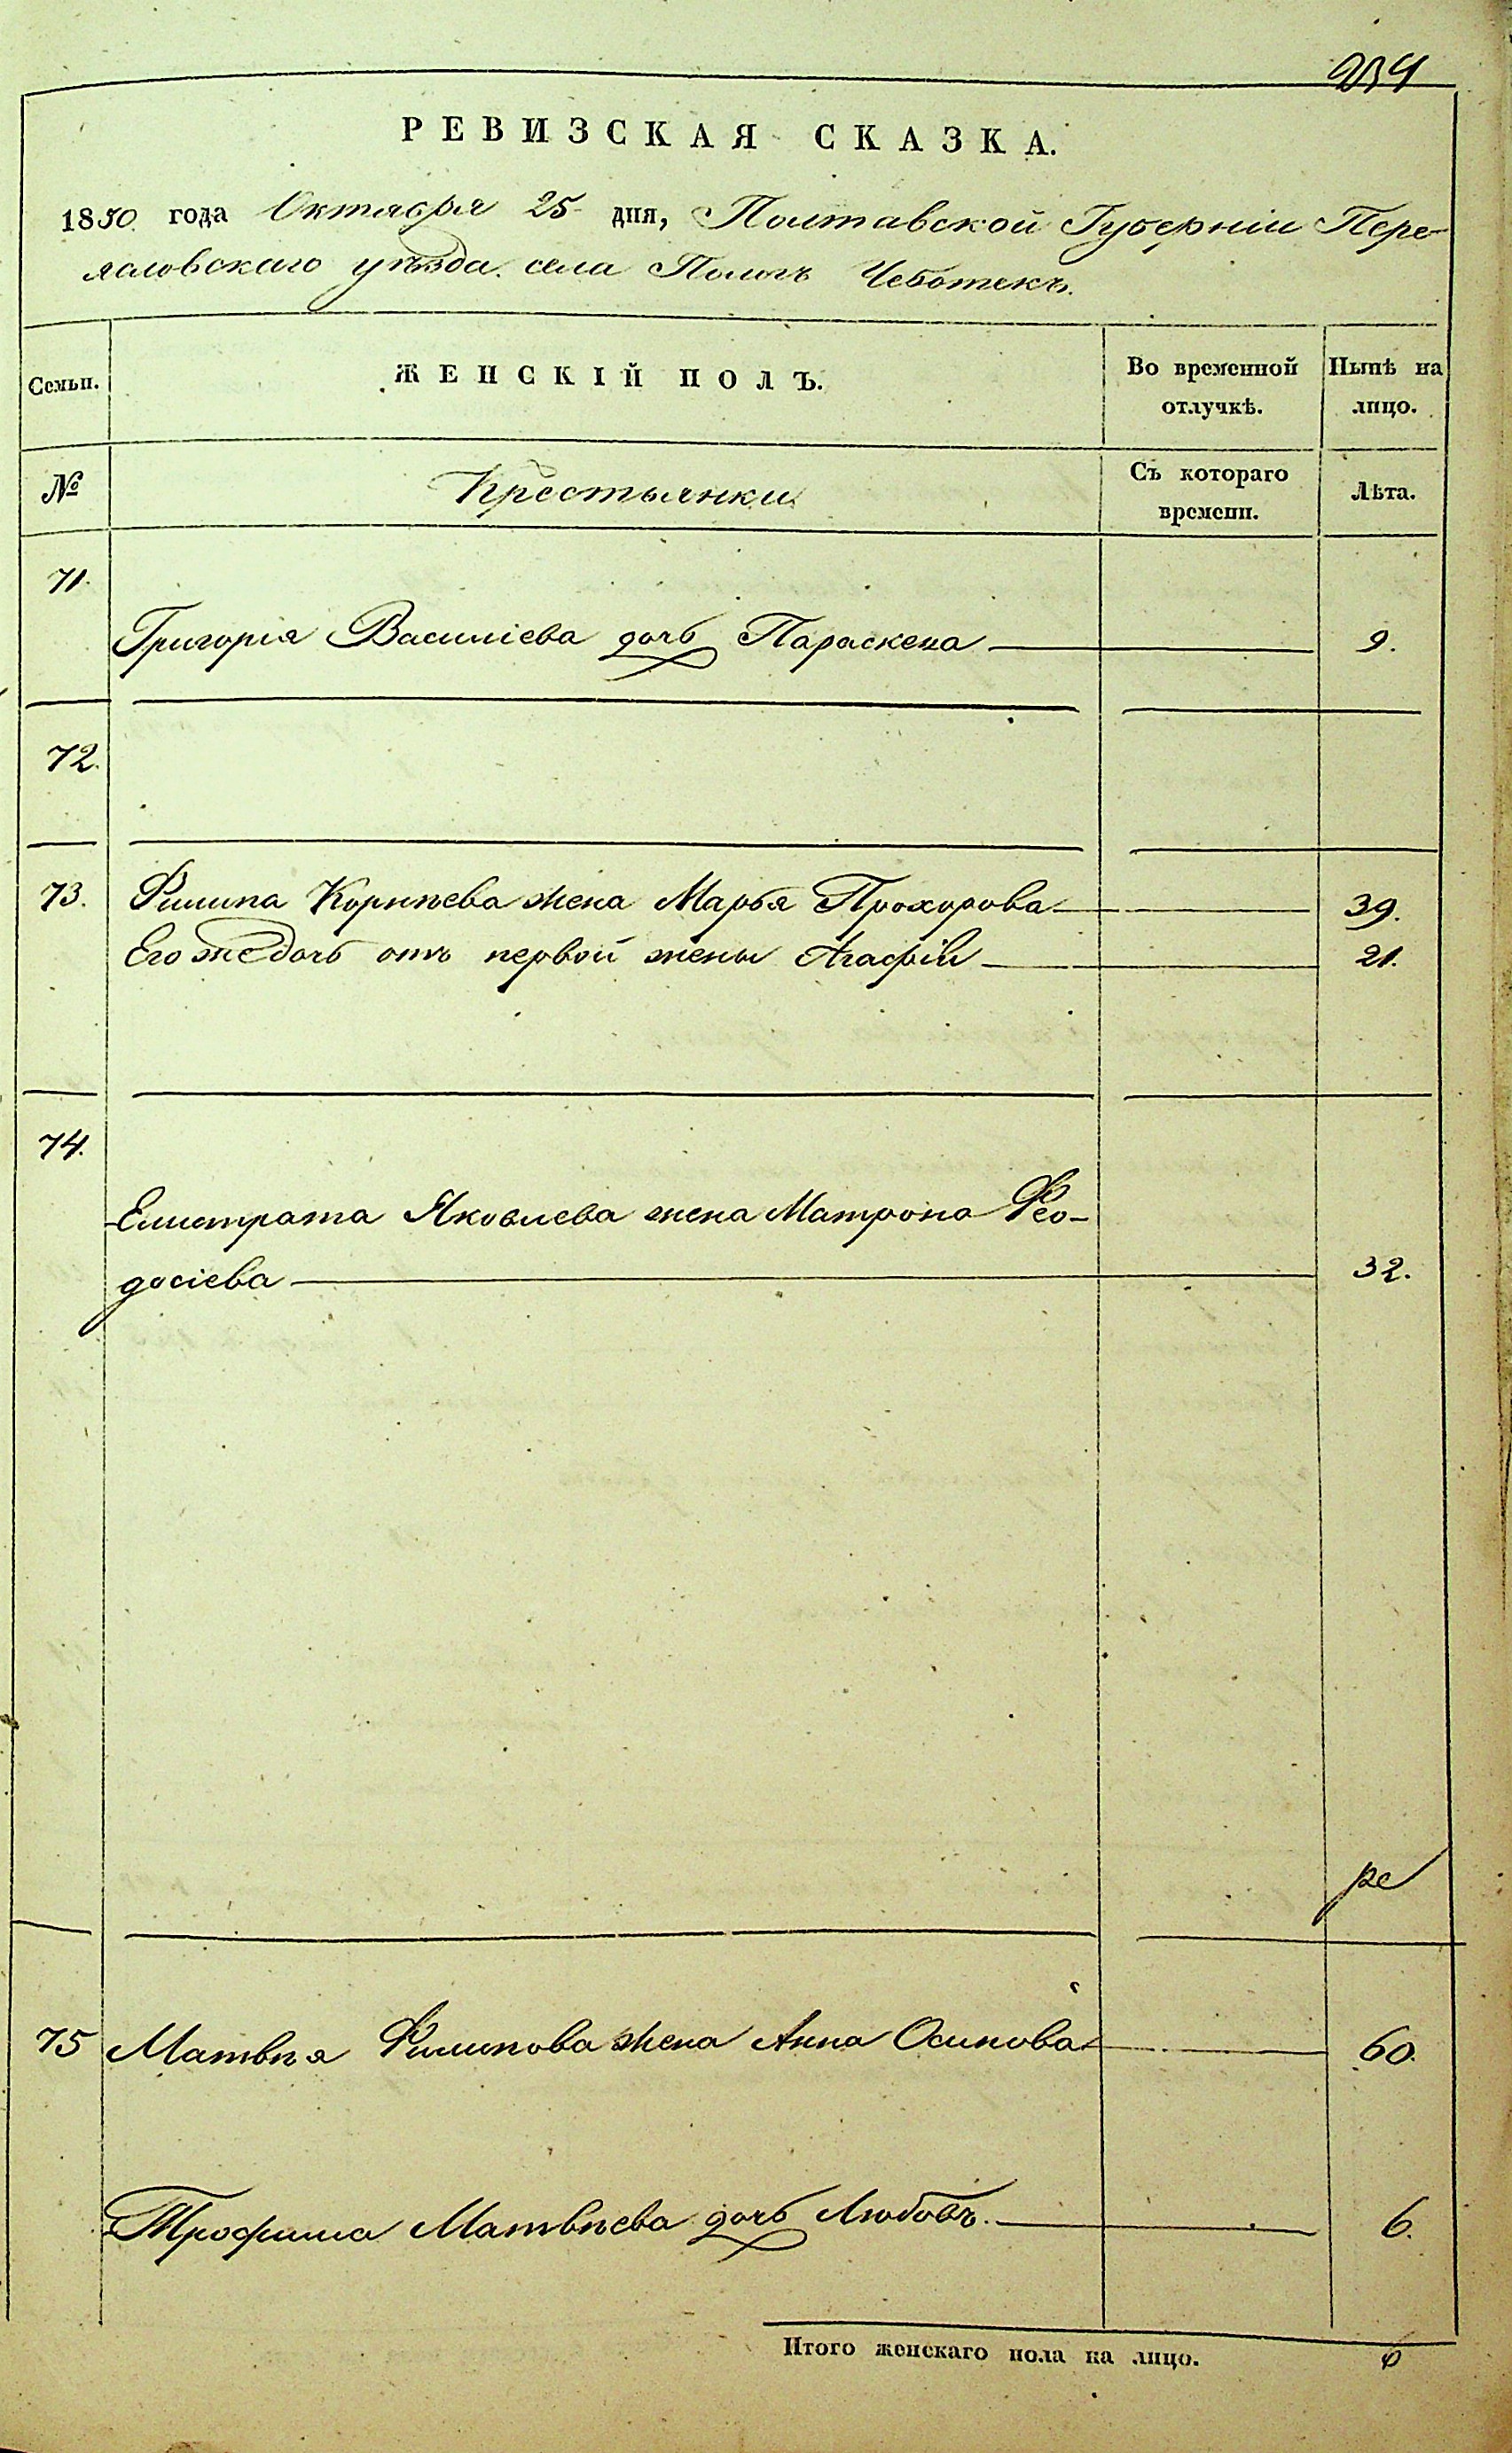 234
РЕВИЗСКАЯ СКАЗКА.
1850 года Октября 25 дня, Полтавской Губерніи Пере-
яславскаго уѣзда села Пологъ Чеботекъ.
Семьи. ЖЕНСКІЙ ПОЛЪ. Во временной отлучкѣ. Нынѣ на лицо.
№ Крестьянки Съ котораго времени. Лѣта.
71.
Григорія Василіева дочь Параскева 9.
72.
73. Филипа Корнѣева жена Марья Прохорова 39.
Его же дочь отъ первой жены Агафіи 21.
74.
Елистрата Яковлева жена Матрона Фео-
досіева 32.
75 Матвѣя Филипова жена Анна Осипова 60.
Трофима Матвѣева дочь Любовъ. 6.
Итого женскаго пола на лицо. 6